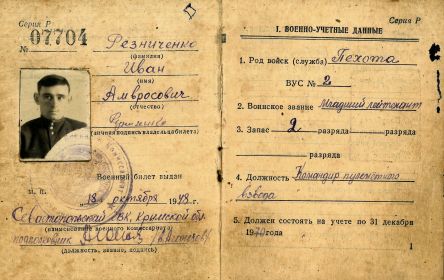 Серия Р
№ 07704
Резниченко
(фамилия)
Иван
(имя)
Амвросович
(отчество)
(личная подпись владельца билета)
Военный билет выдан
М. П.
18 октября 1948 г.
Севастопольский ГВК, Крымской обл
(наименование военного комиссариата)
подполковник
(должность, звание, подпись)
Серия Р
I. ВОЕННО-УЧЕТНЫЕ ДАННЫЕ
1. Род войск (служба) Пехота
ВУС № 2
2. Воинское звание Младший лейтенант
3. Запас 2 разряда разряда
разряда
4. Должность Командир пулеметного
взвода
5. Должен состоять на учете по 31 декабря
1970 года
1